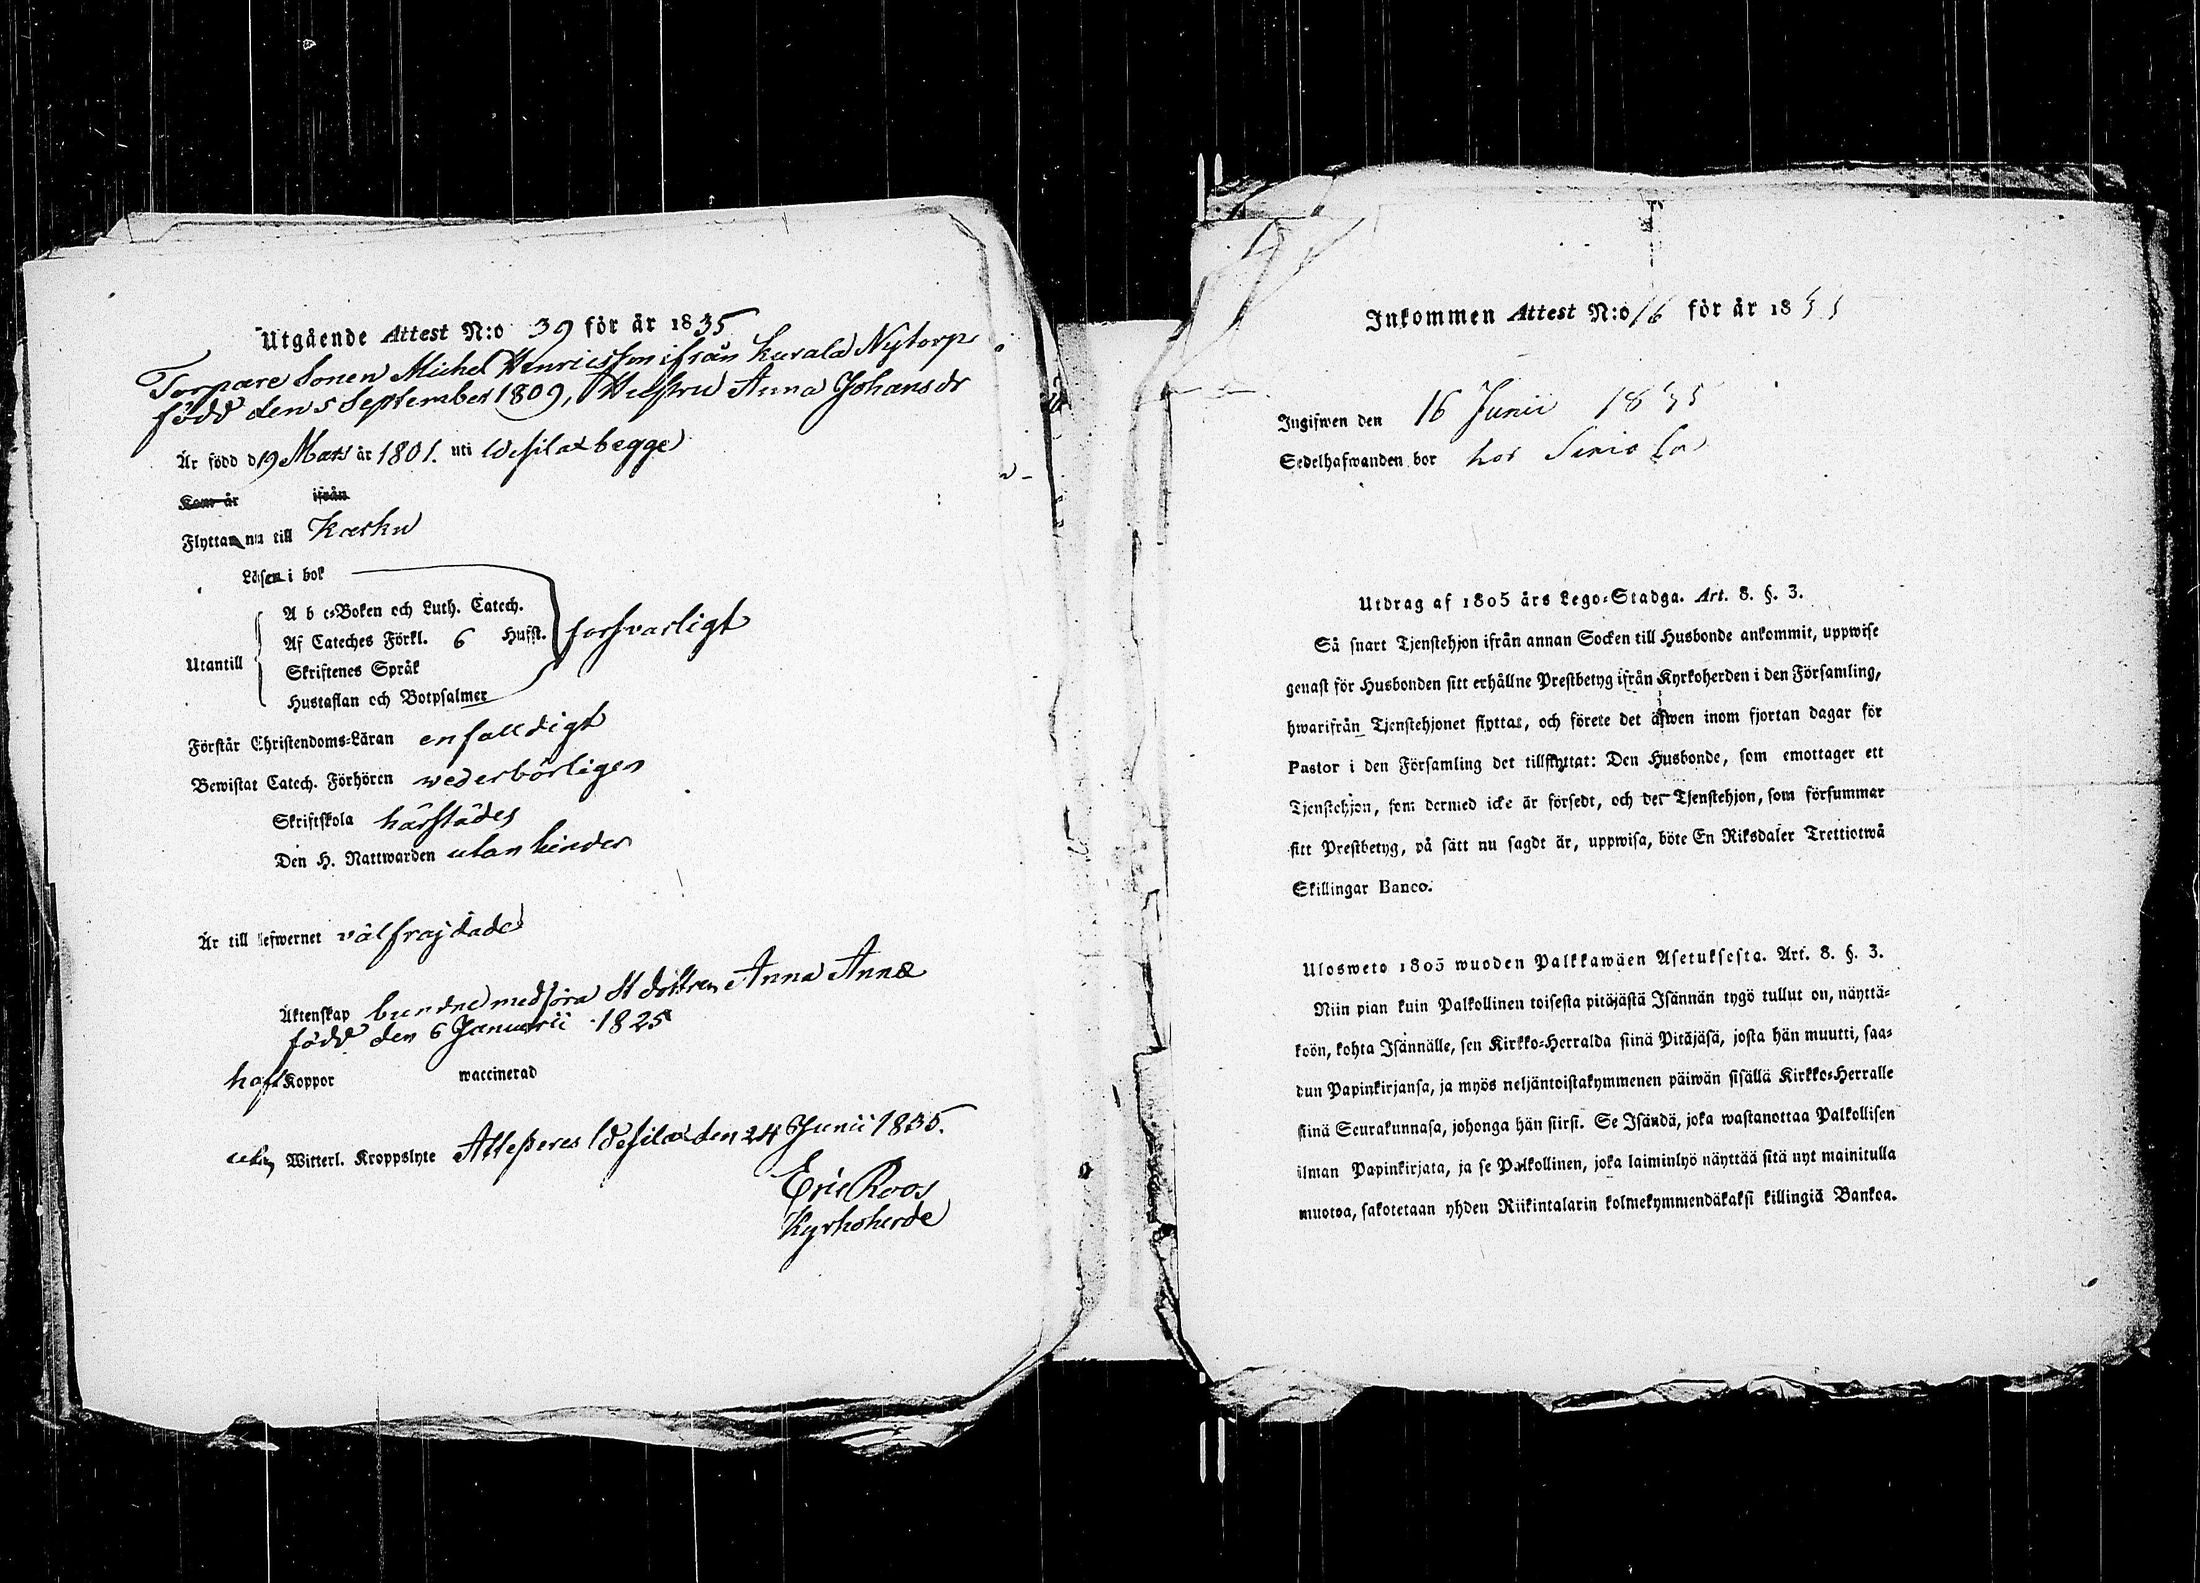 Utgående Attest N:o 39 för år 1835
Torpare Sonen Michel Henricsson ifrån Kurala Nytorp
född den 5 September 1809, Hustru Anna Johansdr
Är född d 19 Mars år 1801. uti Wesilax begge
Kom år ifrån
Flyttar nu till Karku
Läsen i bok
A b c-Boken och Luth. Catech.
Af Cateches Förkl. 6 Hufst. försvarligt
Utantill
Skriftenes Språk
Hustaflan och Botpsalmer
Förstår Christendoms-Läran enfalldigt
Bewistat Catech. Förhören wederbörligen
Skriftskola härstädes
Den H. Nattwarden utan hinder
Är till lefwernet välfrajdade
Äktenskap bundne medföra dottren Anna
född den 6 Januarii 1825
haft Koppor waccinerad
utan Witterl. Kroppslyte Atteßeres Wesilax den 24 Junii 1835.
Eric Roos
Kyrkoherde
Inkommen Attest N:o 16 för år 1835
Ingifwen den 16 Junii 1835
Sedelhafwanden bor hos
Utdrag af 1805 års Lego-Stadga. Art. 8. §. 3.
Så snart Tjenstehjon ifrån annan Socken till Husbonde ankommit, uppwise
genast för Husbonden sitt erhållne Prestbetyg ifrån Kyrkoherden i den Församling,
hwarifrån Tjenstehjonet flyttat, och förete det äfwen inom fjortan dagar för
Pastor i den Församling det tillflyttat: Den Husbonde, som emottager ett
Tjenstehjon, som dermed icke är försedt, och det Tjenstehjon, som försummar
sitt Prestbetyg, på sätt nu sagdt är, uppwisa, böte En Riksdaler Trettiotwå
Skillingar Banco.
Ulosweto 1805 wuoden Palkkawäen Asetuksesta. Art. 8. §. 3.
Niin pian kuin Palkollinen toisesta pitäjästä Isännän tygö tullut on, näyttä-
köön, kohta Isännälle, sen Kirkko-Herralda siinä Pitäjäsä, josta hän muutti, saa-
dun Papinkirjansa, ja myös neljäntoistakymmenen päiwän sisällä Kirkko-Herralle
siinä Seurakunnasa, johonga hän siirsi. Se Isändä, joka wastanottaa Palkollisen
ilman Papinkirjata, ja se Palkollinen, joka laiminlyö näyttää sitä nyt mainitulla
muotoa, sakotetaan yhden Riikintalarin kolmekymmendäkaksi killingiä Bankoa.